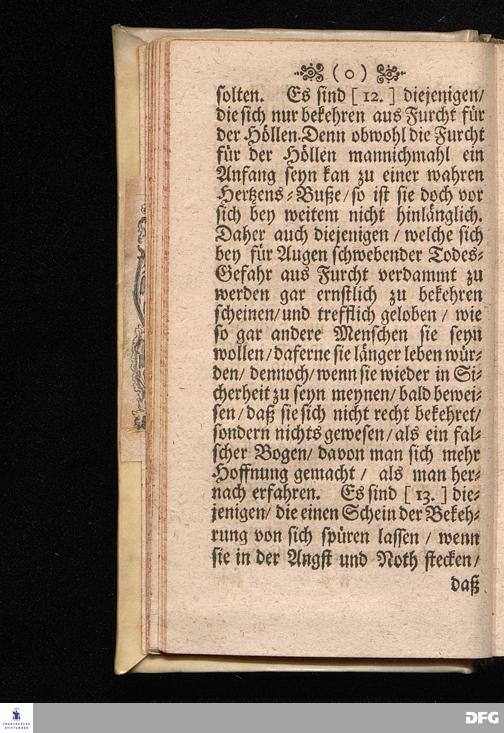 ( o )
solten. Es sind [ 12. ] diejenigen/
die sich nur bekehren aus Furcht für
der Höllen. Denn obwohl die Furcht
für der Höllen mannichmahl ein
Anfang seyn kan zu einer wahren
Hertzens-Buße/ so ist sie doch vor
sich bey weitem nicht hinlänglich.
Daher auch diejenigen / welche sich
bey für Augen schwebender Todes-
Gefahr aus Furcht verdammt zu
werden gar ernstlich zu bekehren
scheinen/ und trefflich geloben / wie
so gar andere Menschen sie seyn
wollen / daferne sie länger leben wür-
den/ dennoch/ wenn sie wieder in Si-
cherheit zu seyn meynen/ bald bewei-
sen/ daß sie sich nicht recht bekehret/
sondern nichts gewesen/ als ein fal-
scher Bogen/ davon man sich mehr
Hoffnung gemacht / als man her-
nach erfahren. Es sind [ 13. ] die-
jenigen/ die einen Schein der Bekeh-
rung von sich spüren lassen / wenn
sie in der Angst und Noth stecken/
daß
FRANCKESCHE
STIFTUNGEN
DFG